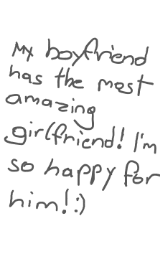 My boyfriend
has the most
amazing
girlfriend! I'm
so happy for
him!:)